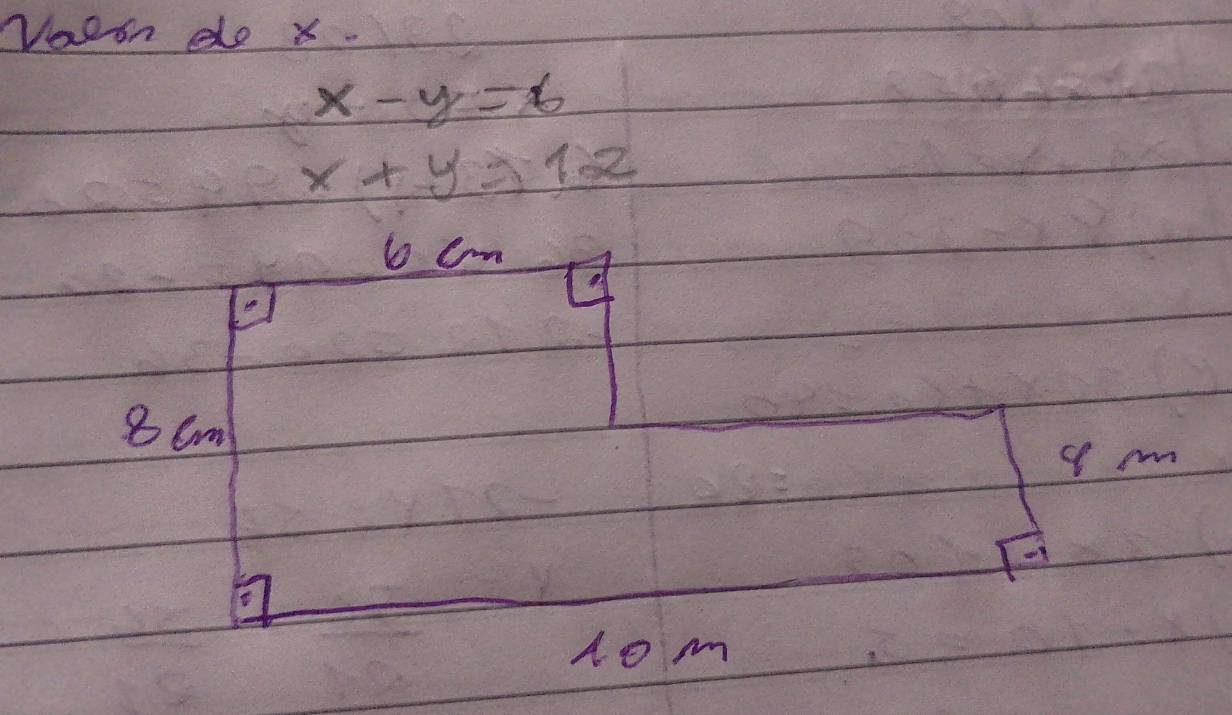 Valor de x.
x - y = 6
x + y = 12
6 cm
8 cm
10 m